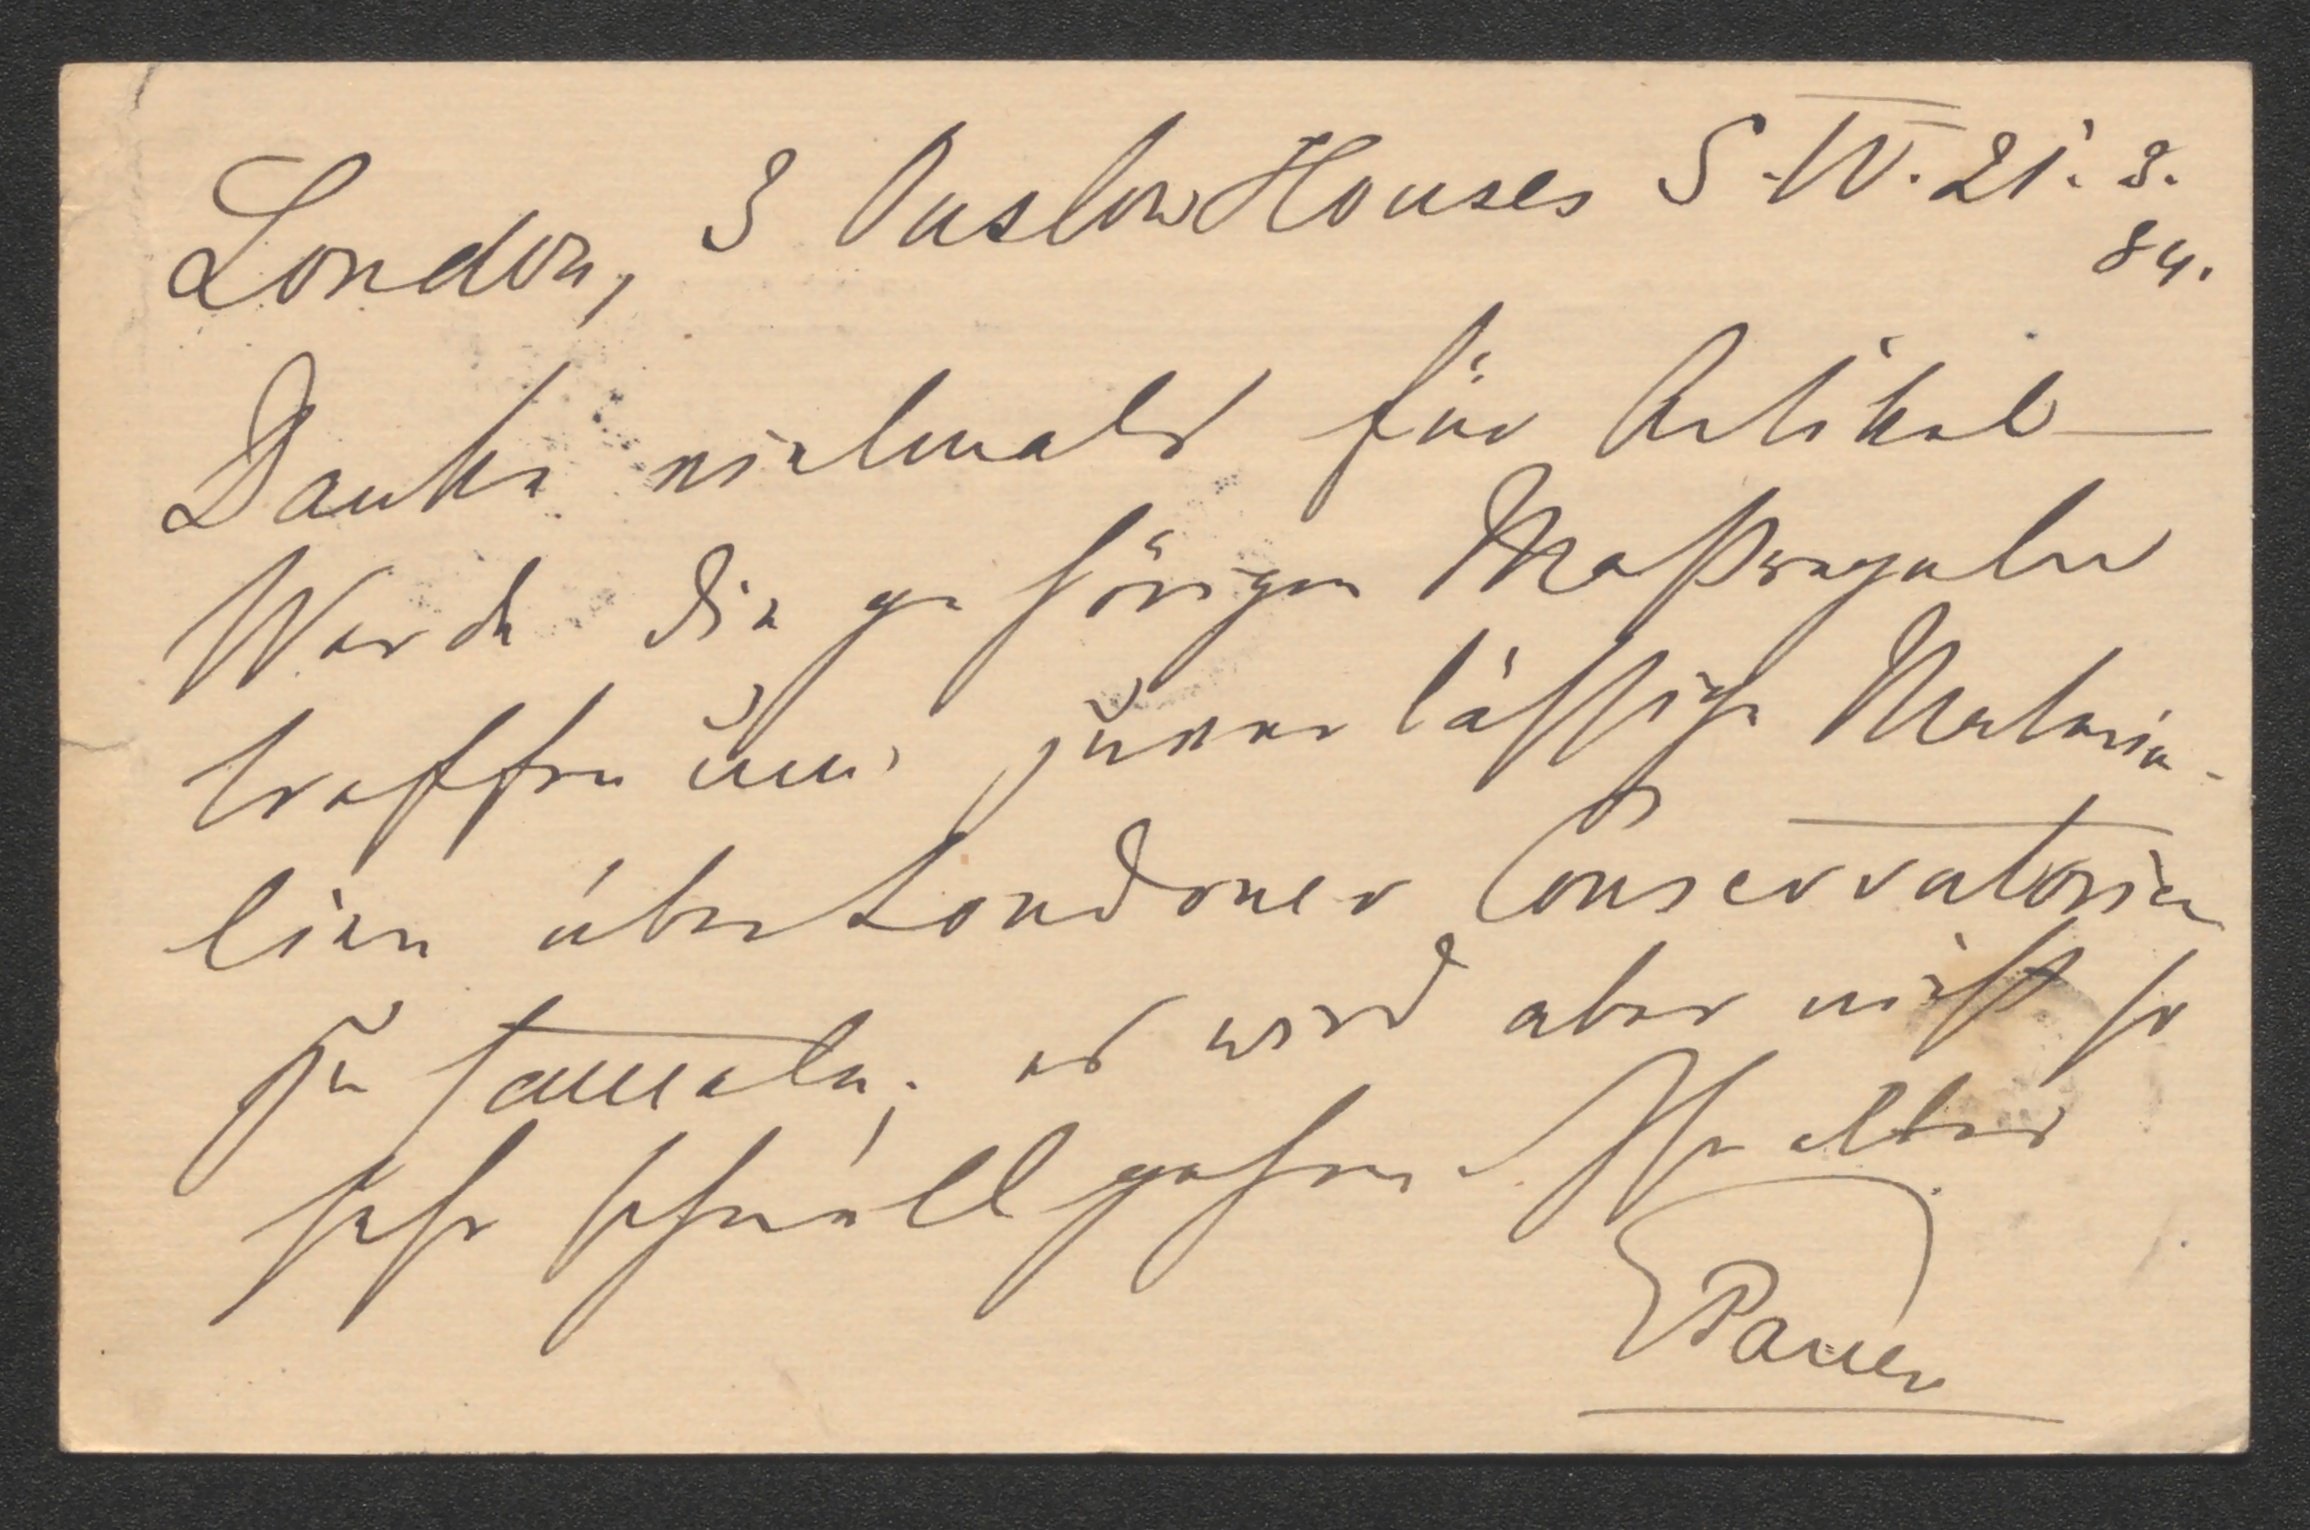 London, 3 Onslow Houses S.W. 21. 3.
84.
Danke vielmals für Artikel —
Werde die gehörigen Maßregeln
treffen um zuverlässige Materia-
lien über Londoner Conservatorien
zu sam̅eln; es wird aber nicht so
sehr schnell gehen. Ihr alter
EPauer